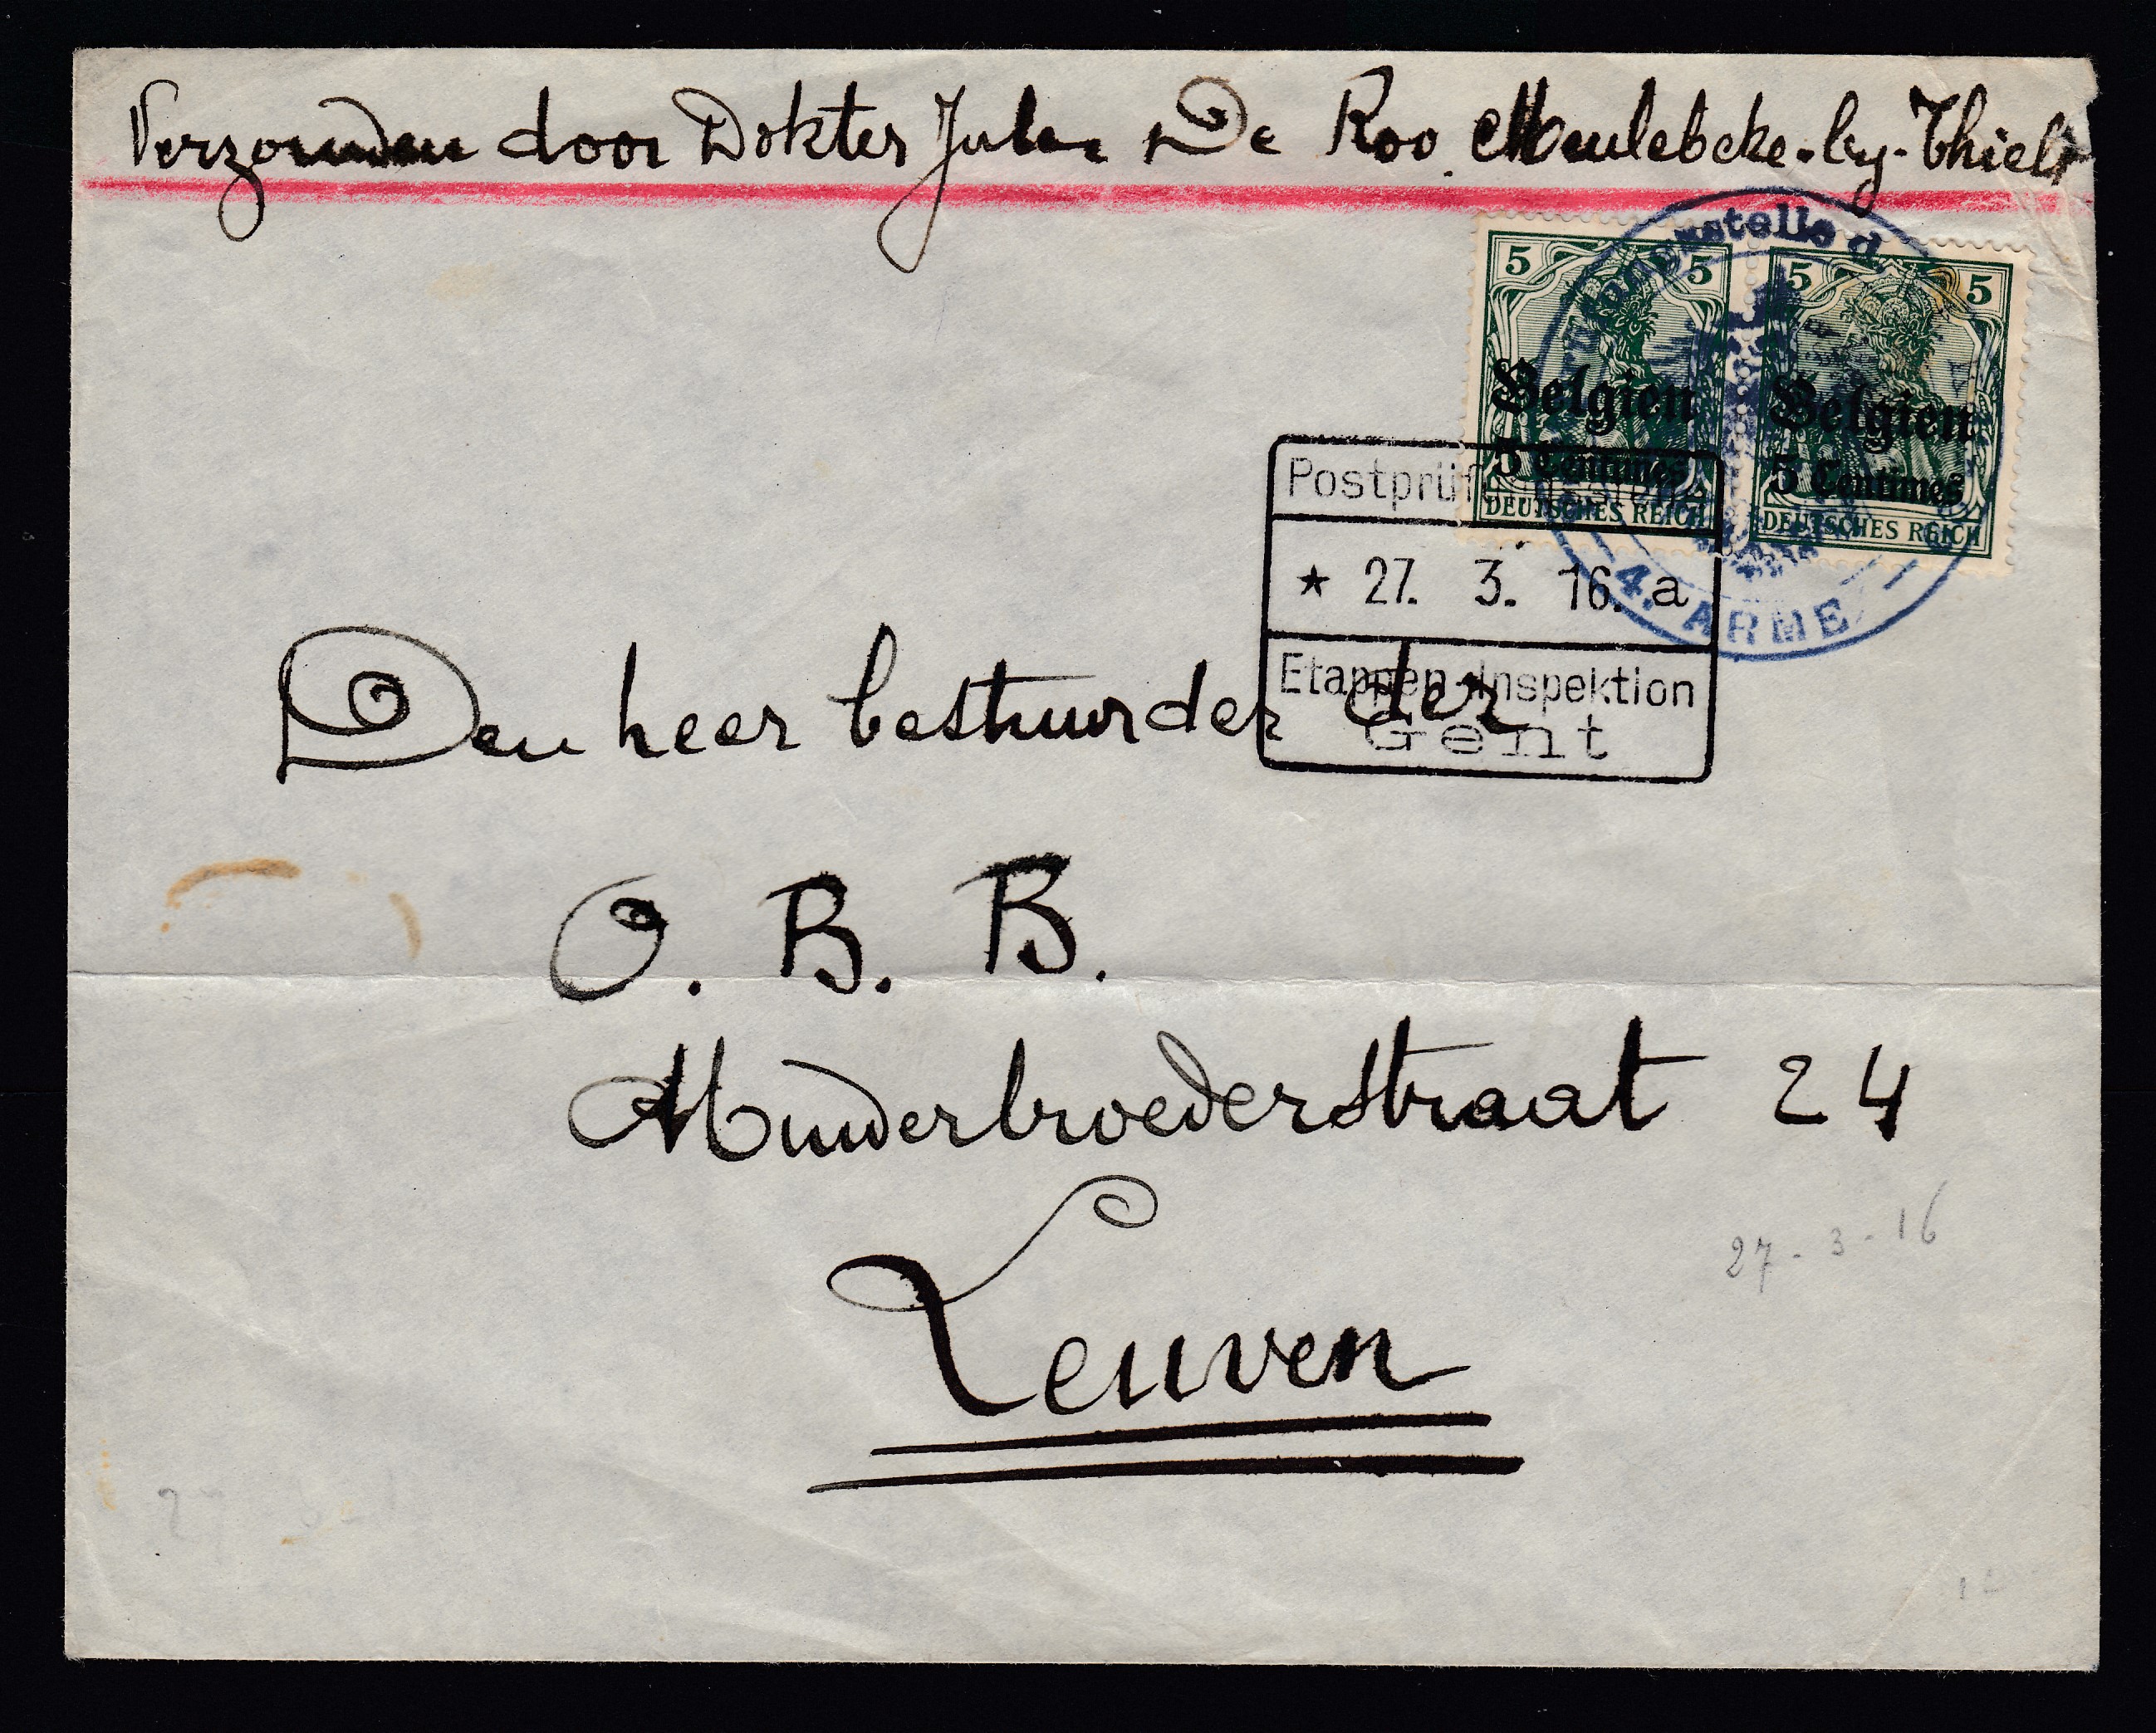 Verzonden door Dokter Jules De Roo. Meulebeke-by-Thielt
5 5
5 5
Belgien
5 Centimes
DEUTSCHES REICH
Belgien
5 Centimes
DEUTSCHES REICH
4. ARMEE
* 27. 3. 16. a
Etappen-Inspektion
Gent
Den heer bestuurder der
O. B. B.
Minderbroederstraat 24
Leuven
27-3-16